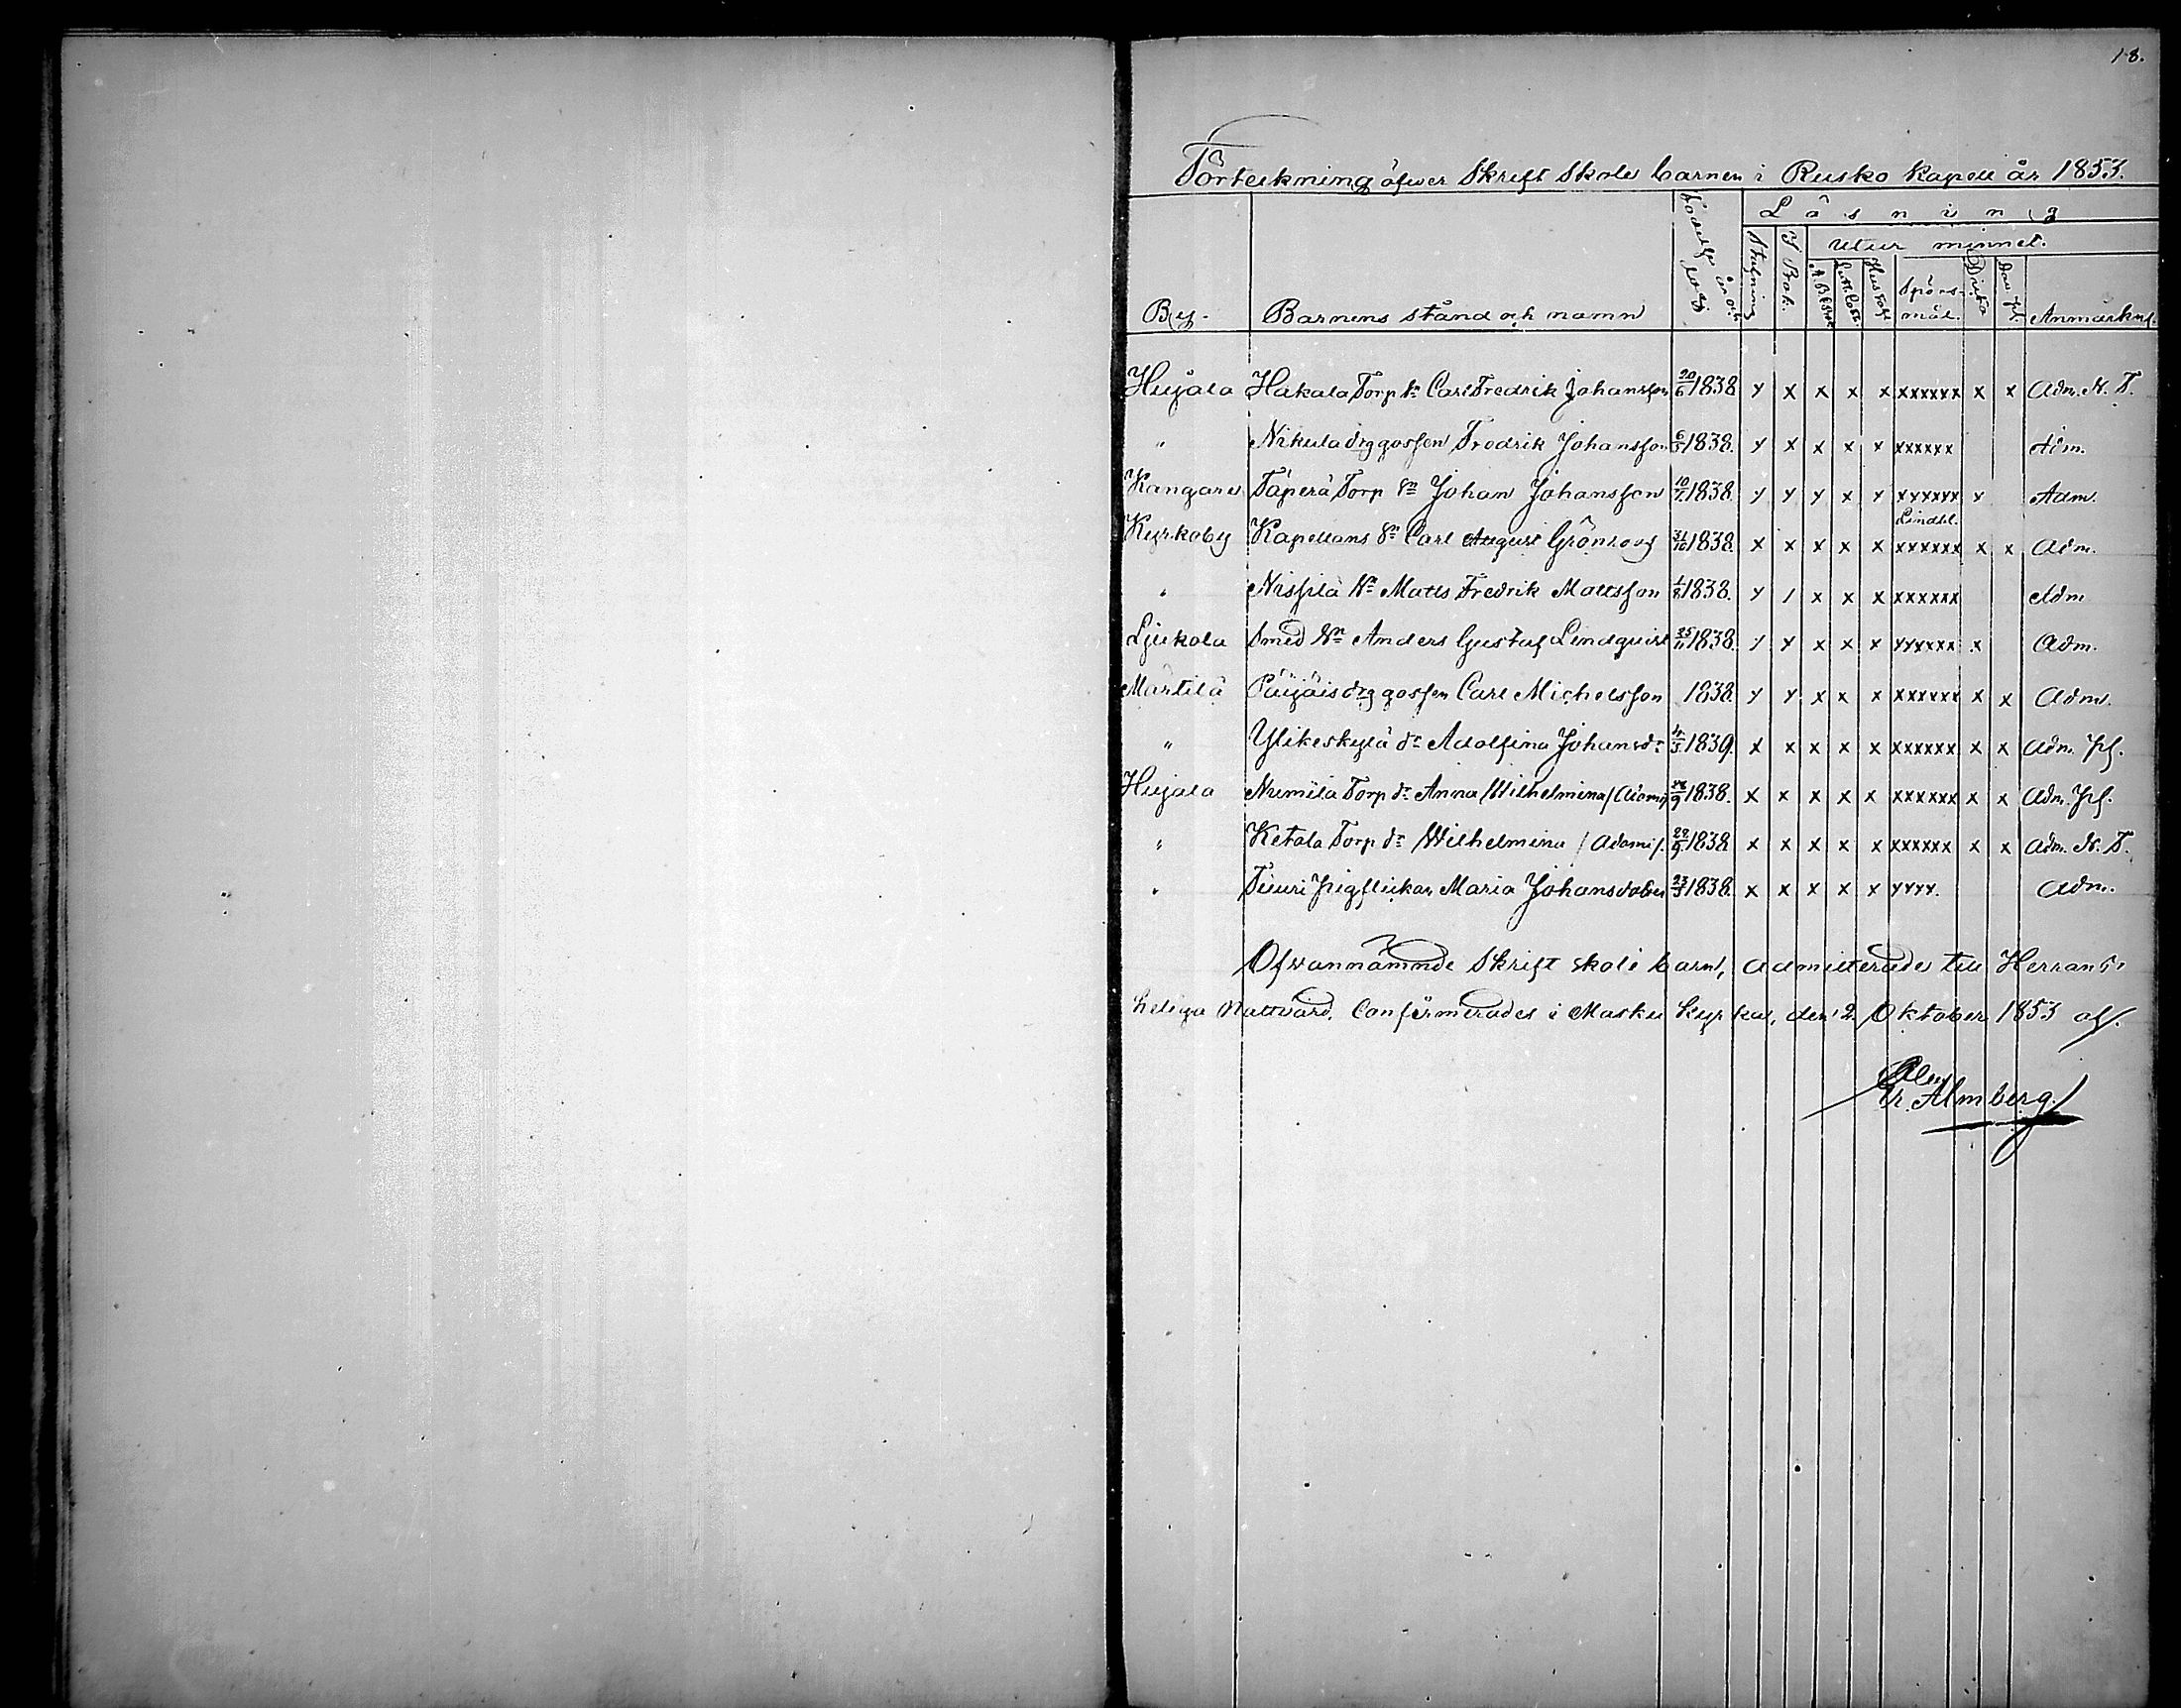 18.
Förteckning öfwer Skrift Skole barnen i Rusko Kapell år 1853.
By. Barnens stånd och namn Födelse år och dag Läsning
Utur minnet.
Stafning I Bok. A.B.C. Bok Luth. Cat. Hustafl. Spörs-mål. Dav. Ps. Anmärkn.
Hujala Hakala Torp Sn Carl Fredrik Johansson 20/6 1838 y x x x x xxxxxx x x Adm. N. T.
" Nikula drg gossen Fredrik Johansson 1838. y x x x x xxxxxx Adm.
Kangare Täperä Torp Sn Johan Johansson 10/7 1838. y y y x y xyxxyx x Adm.
Lindbl.
Kyrkoby Kapellans Sn Carl August Grönroos 31/10 1838. x x x x x xxxxxx x x Adm.
" Nissilä Sn Matts Fredrik Mattsson 1/8 1838. y / x x x xxxxxx Adm
Ljukola Smed Sn Anders Gustaf Lindquist 25/11 1838. y y x x x yyyxxx x Adm.
Märtilä Päijäis drg gossen Carl Michelsson 1838. y y x x x xxxxxx x x Adm.
" Ylikeskylä dr Adolfina Johansdr 4/5 1839. x x x x x xxxxxx x x Adm. Ps.
Hujala Numila Torp dr Anna Wilhelmina /Adami/ 1838. x x x x x xxxxxx x x Adm. Ps.
" Ketola Torp dr Wilhelmina /Adami/. 29/9 1838 x x x x x xxxxxx x x Adm. N. T.
" Tuuri pigflickan Maria Johansdotter 23/3 1838. x x x x x yyyy. Adm.
Ofwannämnde Skrift skole barn, admitterade till Herrans
heliga Nattvard, Confirmerades i Masku kyrka, den 2 Oktober 1853 af.
Er. Almberg